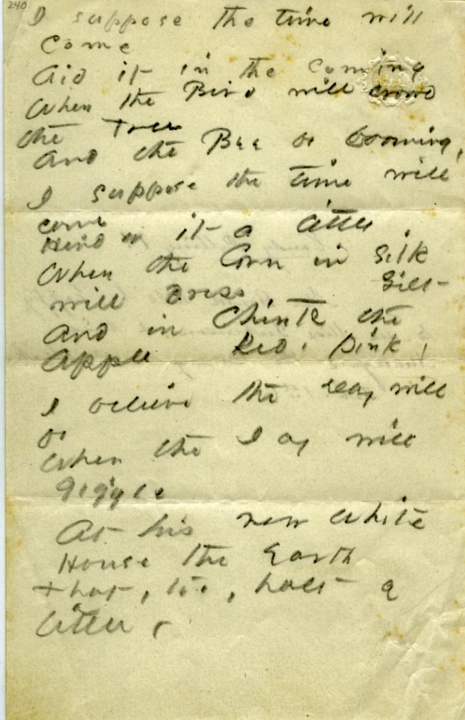 240
I suppose the time will
come
Aid it in the coming
When the Bird will crowd
the Tree
And the Bee be booming,
I suppose the time will
come
Hinder it a little
When the Corn in Silk
will dress Gilt -
And in Chintz the
Apple Red. Pink,
I believe the Day will
be
When the Jay will
giggle
At his new white
House the Earth
That, too, halt a
little,